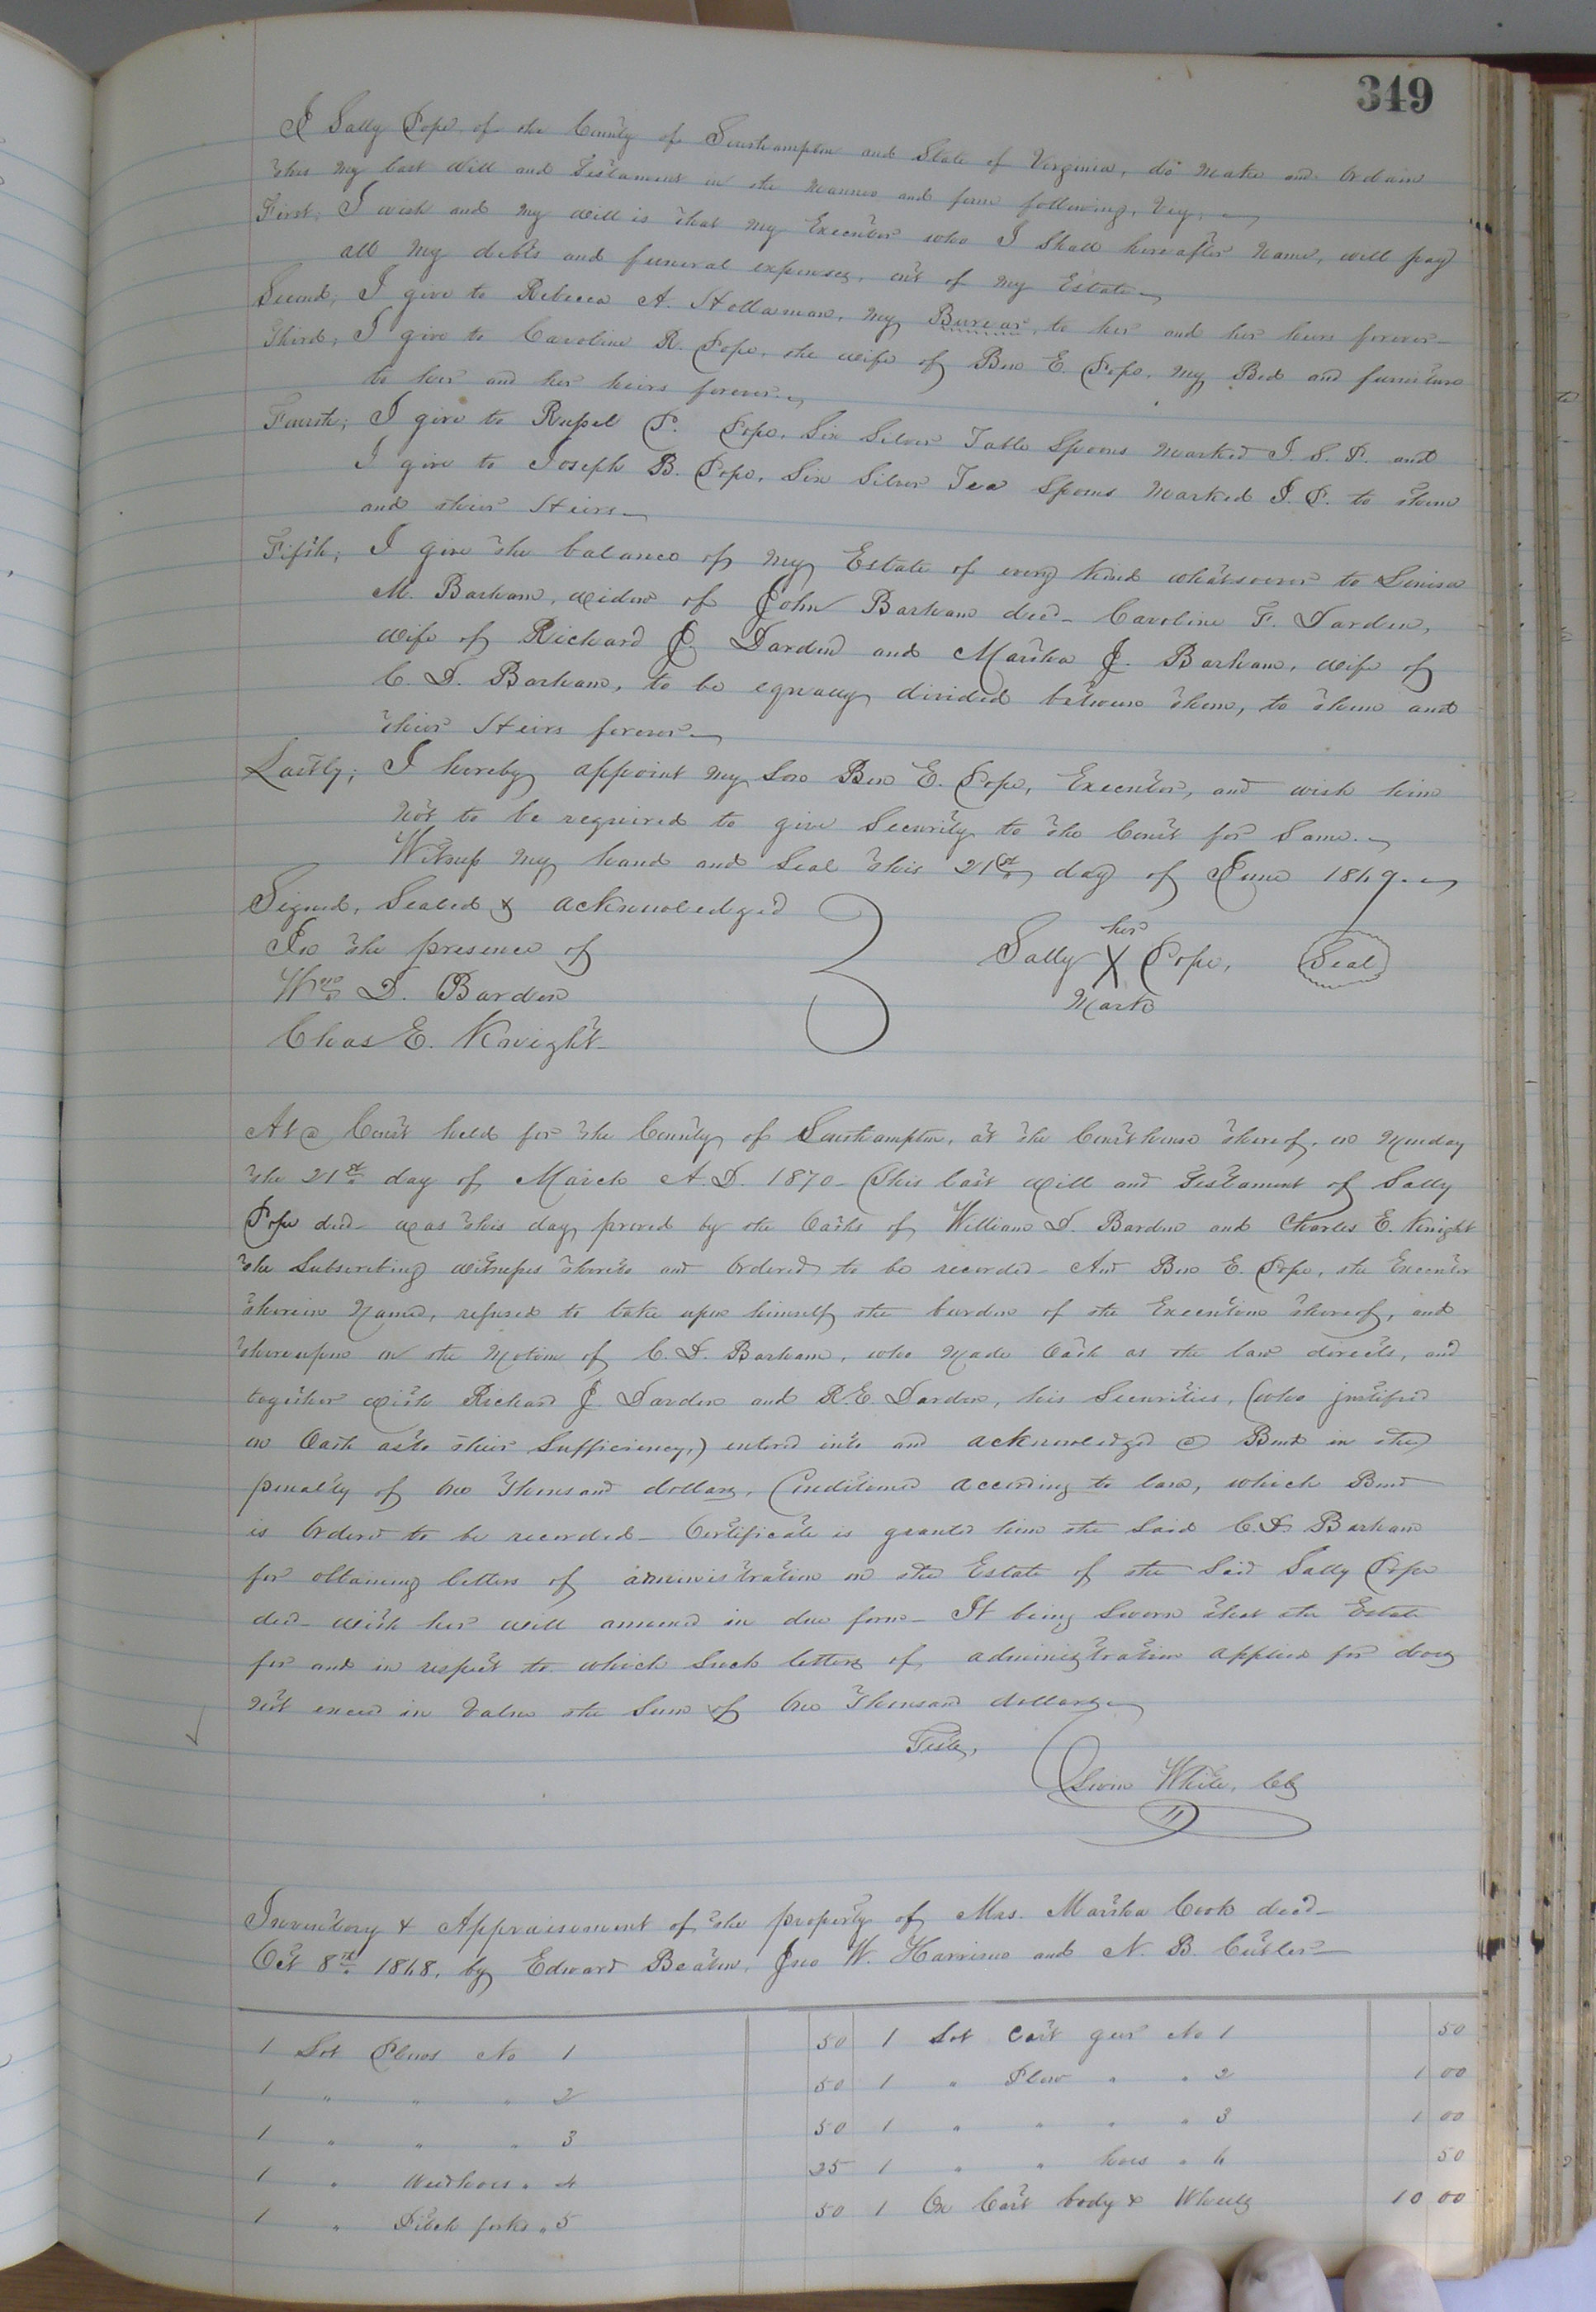 349
I Sally Pope of the County of Southampton and State of Virginia, do make and ordain
this my last Will and Testament in the manner and form following, Viz,
First, I wish and my will is that my Executor who I shall hereafter name, will pay
all my debts and funeral expenses, out of my Estate
Second, I give to Rebecca A. Holloman, my Bureau, to her and her heirs forever
Third, I give to Caroline R. Pope, the wife of Ben E. Pope, my Bed and furniture
to her and her heirs forever.
Fourth; I give to Russel P. Pope, Six Silver Table Spoons marked J. S. P. and
I give to Joseph B. Pope, Six Silver Tea Spoons marked J. P. to them
and their Heirs
Fifth; I give the balance of my Estate of every kind whatsoever to Louisa
M. Barham, widow of John Barham decd Caroline F. Darden,
wife of Richard J. Darden and Martha J. Barham, wife of
C. D. Barham, to be equally divided between them, to them and
their Heirs forever
Lastly; I hereby appoint my Son Ben E. Pope, Executor, and wish him
not to be required to give Security to the Court for Same.
Witness my hand and Seal this 21st day of June 1869.
Signed, Sealed & acknowledged
In the presence of
Wm D. Barden
Chas E. Knight
her
Sally X Pope, Seal
Mark
At a Court held for the County of Southampton, at the Courthouse thereof, on Monday
the 21st day of March A. D. 1870 This last Will and Testament of Sally
Pope decd was this day proved by the Oaths of William D. Barden and Charles E. Knight
the Subscribing witnesses thereto and Ordered to be recorded And Ben E. Pope, the Executor
therein Named, refused to take upon himself the burden of the Execution thereof, and
thereupon on the Motion of C. D. Barham, who Made Oath as the law directs, and
together with Richard J. Darden and R. E. Darden, his Securities, (who justified
on Oath as to their Sufficiency,) entered into and acknowledged a Bond in the
penalty of One Thousand dollars, Conditioned according to law, which Bond
is Ordered to be recorded Certificate is granted him the Said C. D. Barham
for obtaining letters of administration on the Estate of the Said Sally Pope
decd with her will annexed in due form It being Sworn that the Estate
for and in respect to which Such letters of administration applied for does
not exceed in Value the Sum of One Thousand dollars
Teste,
White, Clk
Inventory & Appraisement of the property of Mrs. Martha Cook decd
Oct 8th 1868, by Edward Beaton, Jno W. Harrison and N. B. Cutler
1 Lot Plows No 1 50 1 Lot Cart gear No 1 50
1 " " " 2 50 1 " Plow " " 2 1 00
1 " " " 3 50 1 " " " " 3 1 00
1 " Weedhoes " 4 25 1 " " hoes " 4 50
1 " Pitch forks " 5 50 1 Ox Cart body & Wheels 10 00